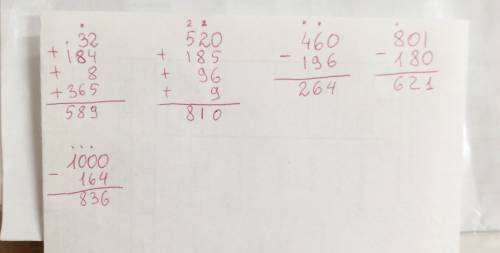 32
+ 184
+ 8
+ 365
589
2 2
520
+ 185
+ 96
+ 9
810
460
- 196
264
801
- 180
621
1000
- 164
836